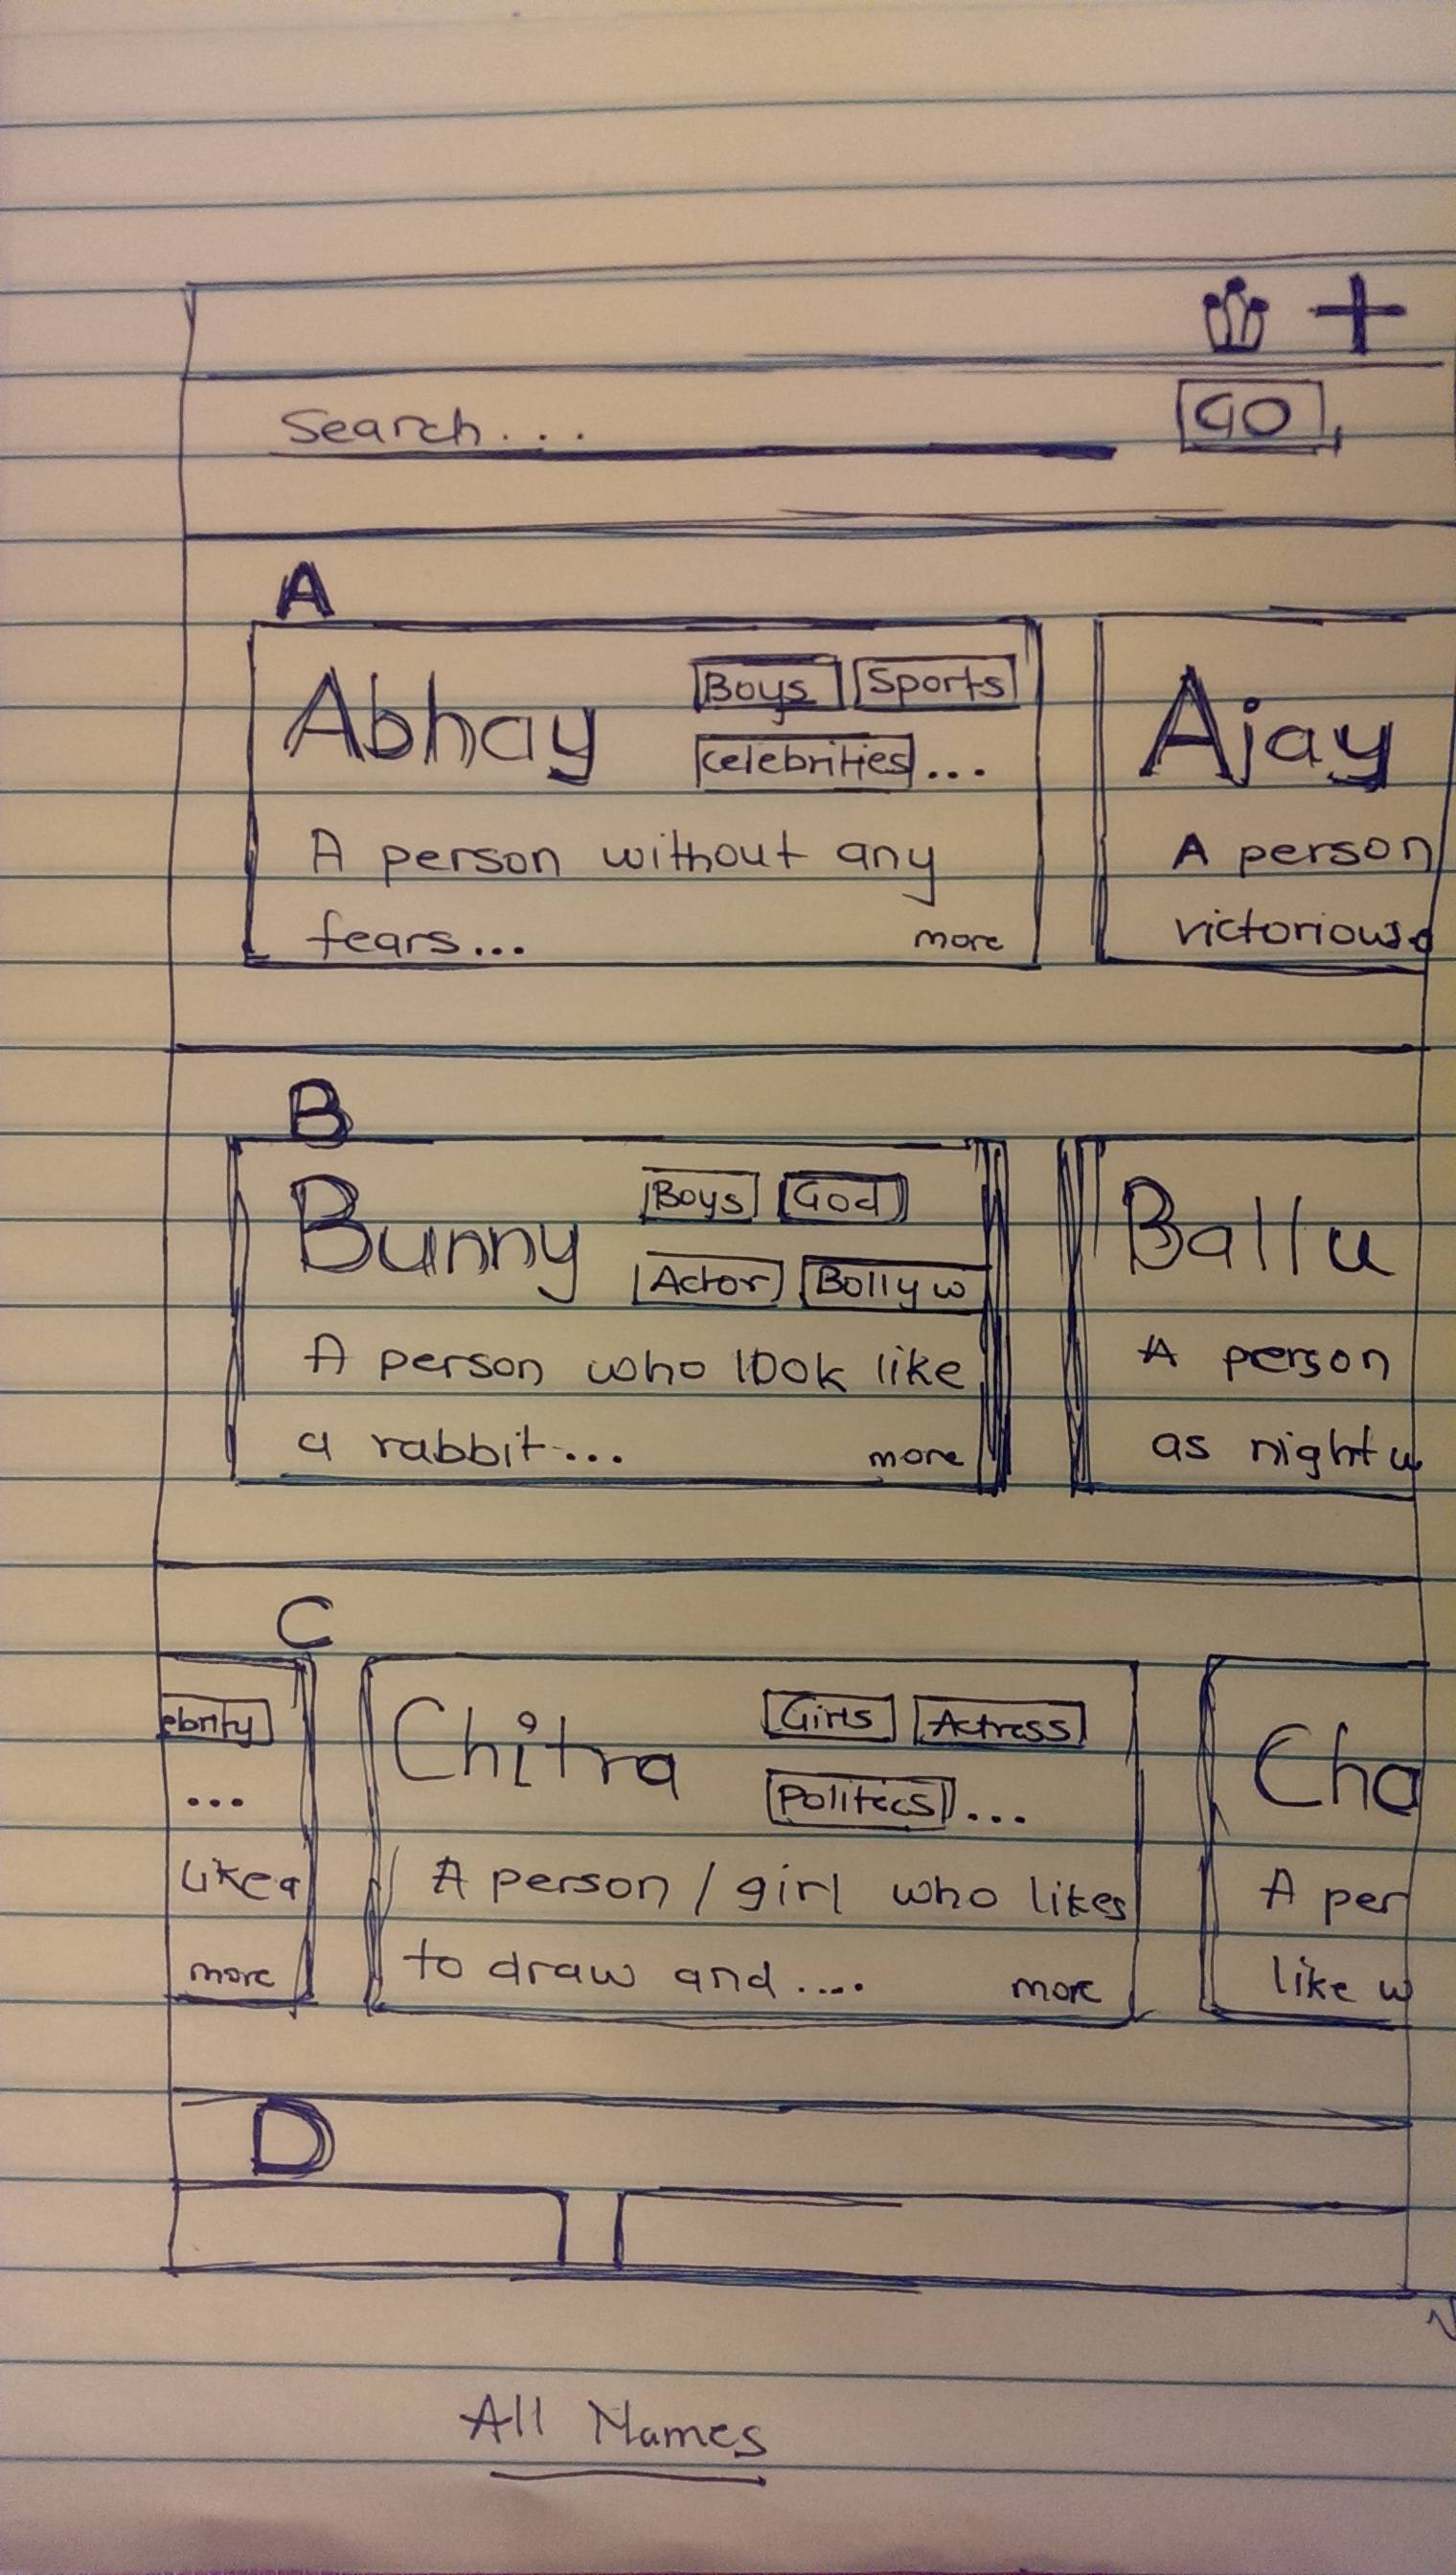 Search...
GO
A
Abhay
Boys
Sports
Celebrities...
A person without any
fears...
more
Ajay
A person
victorious
B
Bunny
Boys
God
Actor
Bollyw
A person who look like
a rabbit...
more
Ballu
A person
as night w
C
ebrity
...
like a
more
Chitra
Girls
Actress
Politics...
A person / girl who likes
to draw and....
more
Cha
A per
like w
D
All Names